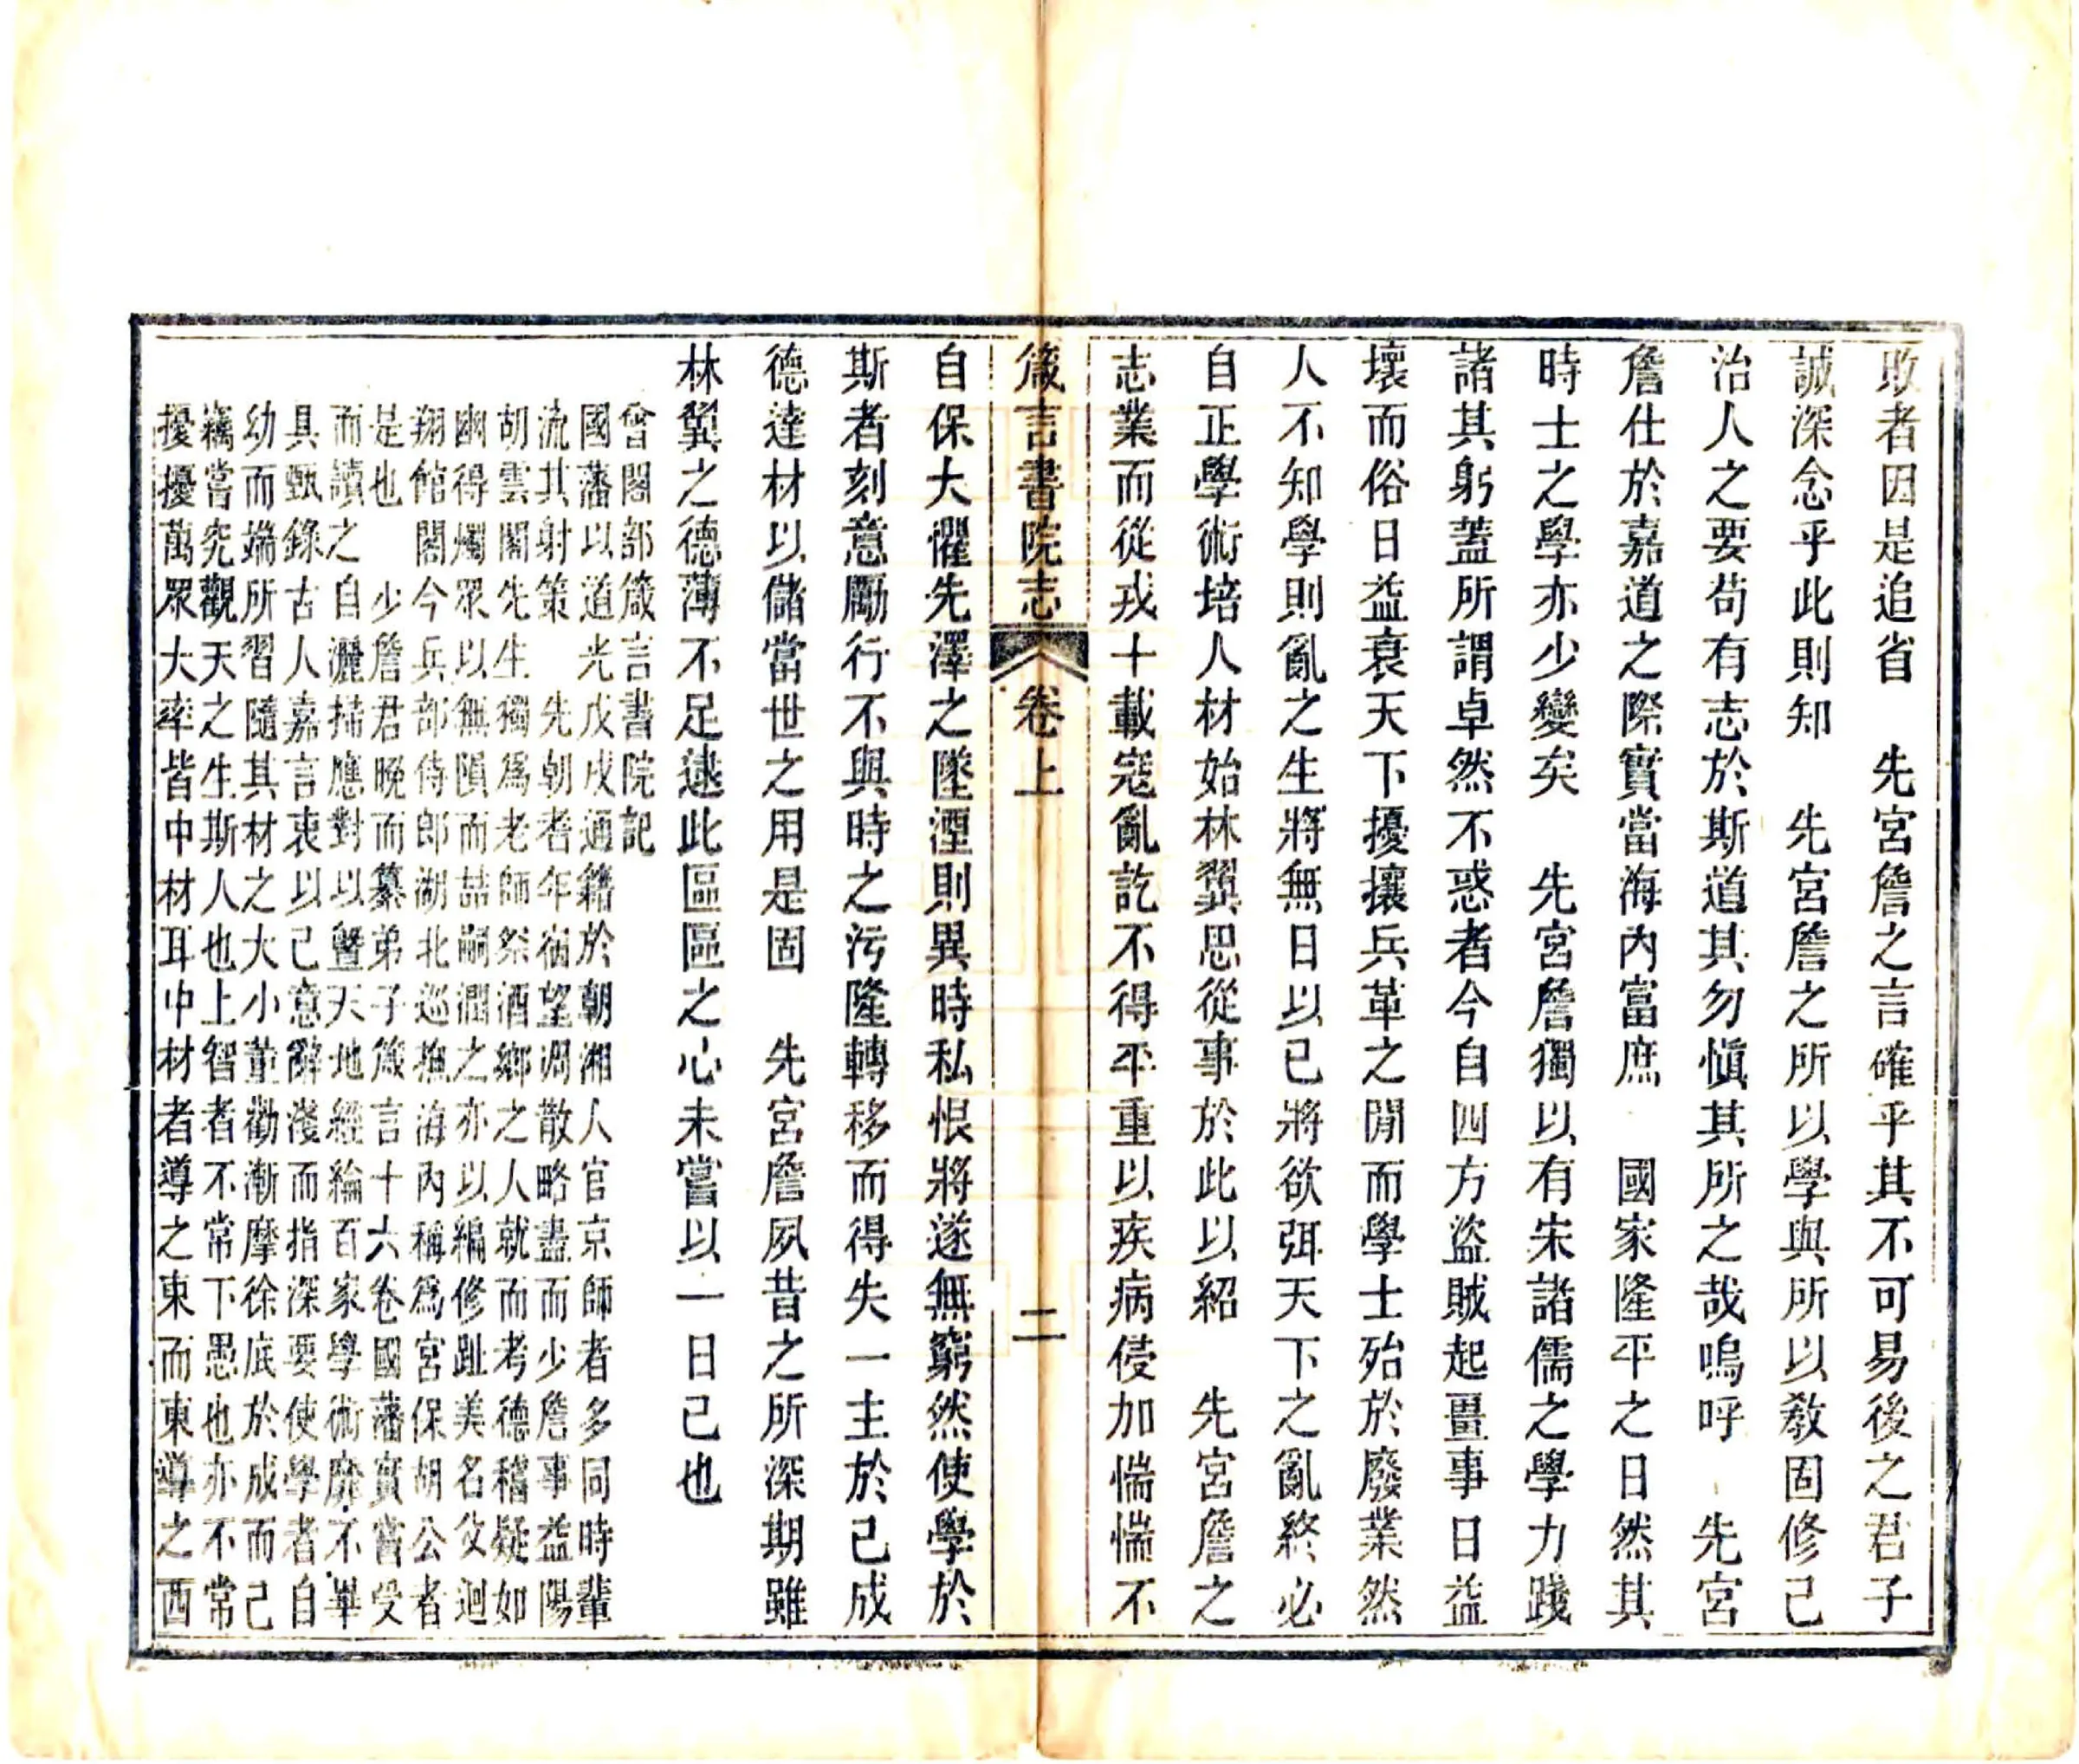 敗者因是追省　先宮詹之言確乎其不可易後之君子
誠深念乎此則知　先宮詹之所以學與所以敎固修己
治人之要苟有志於斯道其勿愼其所之哉嗚呼　先宮
詹仕於嘉道之際實當海內富庶　國家隆平之日然其
時士之學亦少變矣　先宮詹獨以有宋諸儒之學力踐
諸其躬蓋所謂卓然不惑者今自四方盜賊起畺事日益
壞而俗日益衰天下擾攘兵革之閒而學士殆於廢業然
人不知學則亂之生將無日以已將欲弭天下之亂終必
自正學術培人材始林翼思從事於此以紹　先宮詹之
志業而從戎十載寇亂訖不得平重以疾病侵加惴惴不
箴言書院志　卷上　二
自保大懼先澤之墜湮則異時私恨將遂無窮然使學於
斯者刻意勵行不與時之污隆轉移而得失一主於己成
德達材以儲當世之用是固　先宮詹夙昔之所深期雖
林翼之德薄不足逮此區區之心未嘗以一日已也
曾閣部箴言書院記
國藩以道光戊戌通籍於朝湘人官京師者多同時輩
流其射策　先朝者年宿望凋散略盡而少詹事益陽
胡雲閣先生獨爲老師祭酒鄉之人就而考德稽疑如
幽得燭眾以無隕而喆嗣潤之亦以編修趾美名父迴
翔館閣今兵部侍郎湖北巡撫海內稱爲宮保胡公者
是也　少詹君晚而纂弟子箴言十六卷國藩實嘗受
而讀之自灑掃應對以曁天地經綸百家學術靡不畢
具甄錄古人嘉言衷以己意辭淺而指深要使學者自
幼而端所習隨其材之大小董勸漸摩徐底於成而已
竊嘗究觀天之生斯人也上智者不常下愚也亦不常
擾擾萬眾大率皆中材耳中材者導之東而東導之西